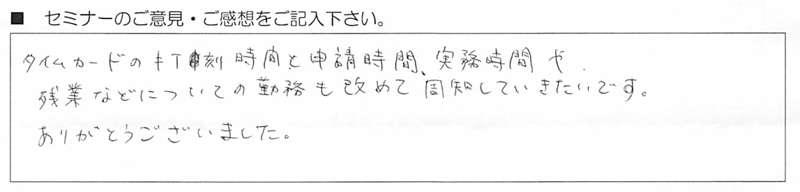 ■ セミナーのご意見・ご感想をご記入下さい。
タイムカードの打刻時間と申請時間、実務時間や
残業などについての勤務も改めて周知していきたいです。
ありがとうございました。